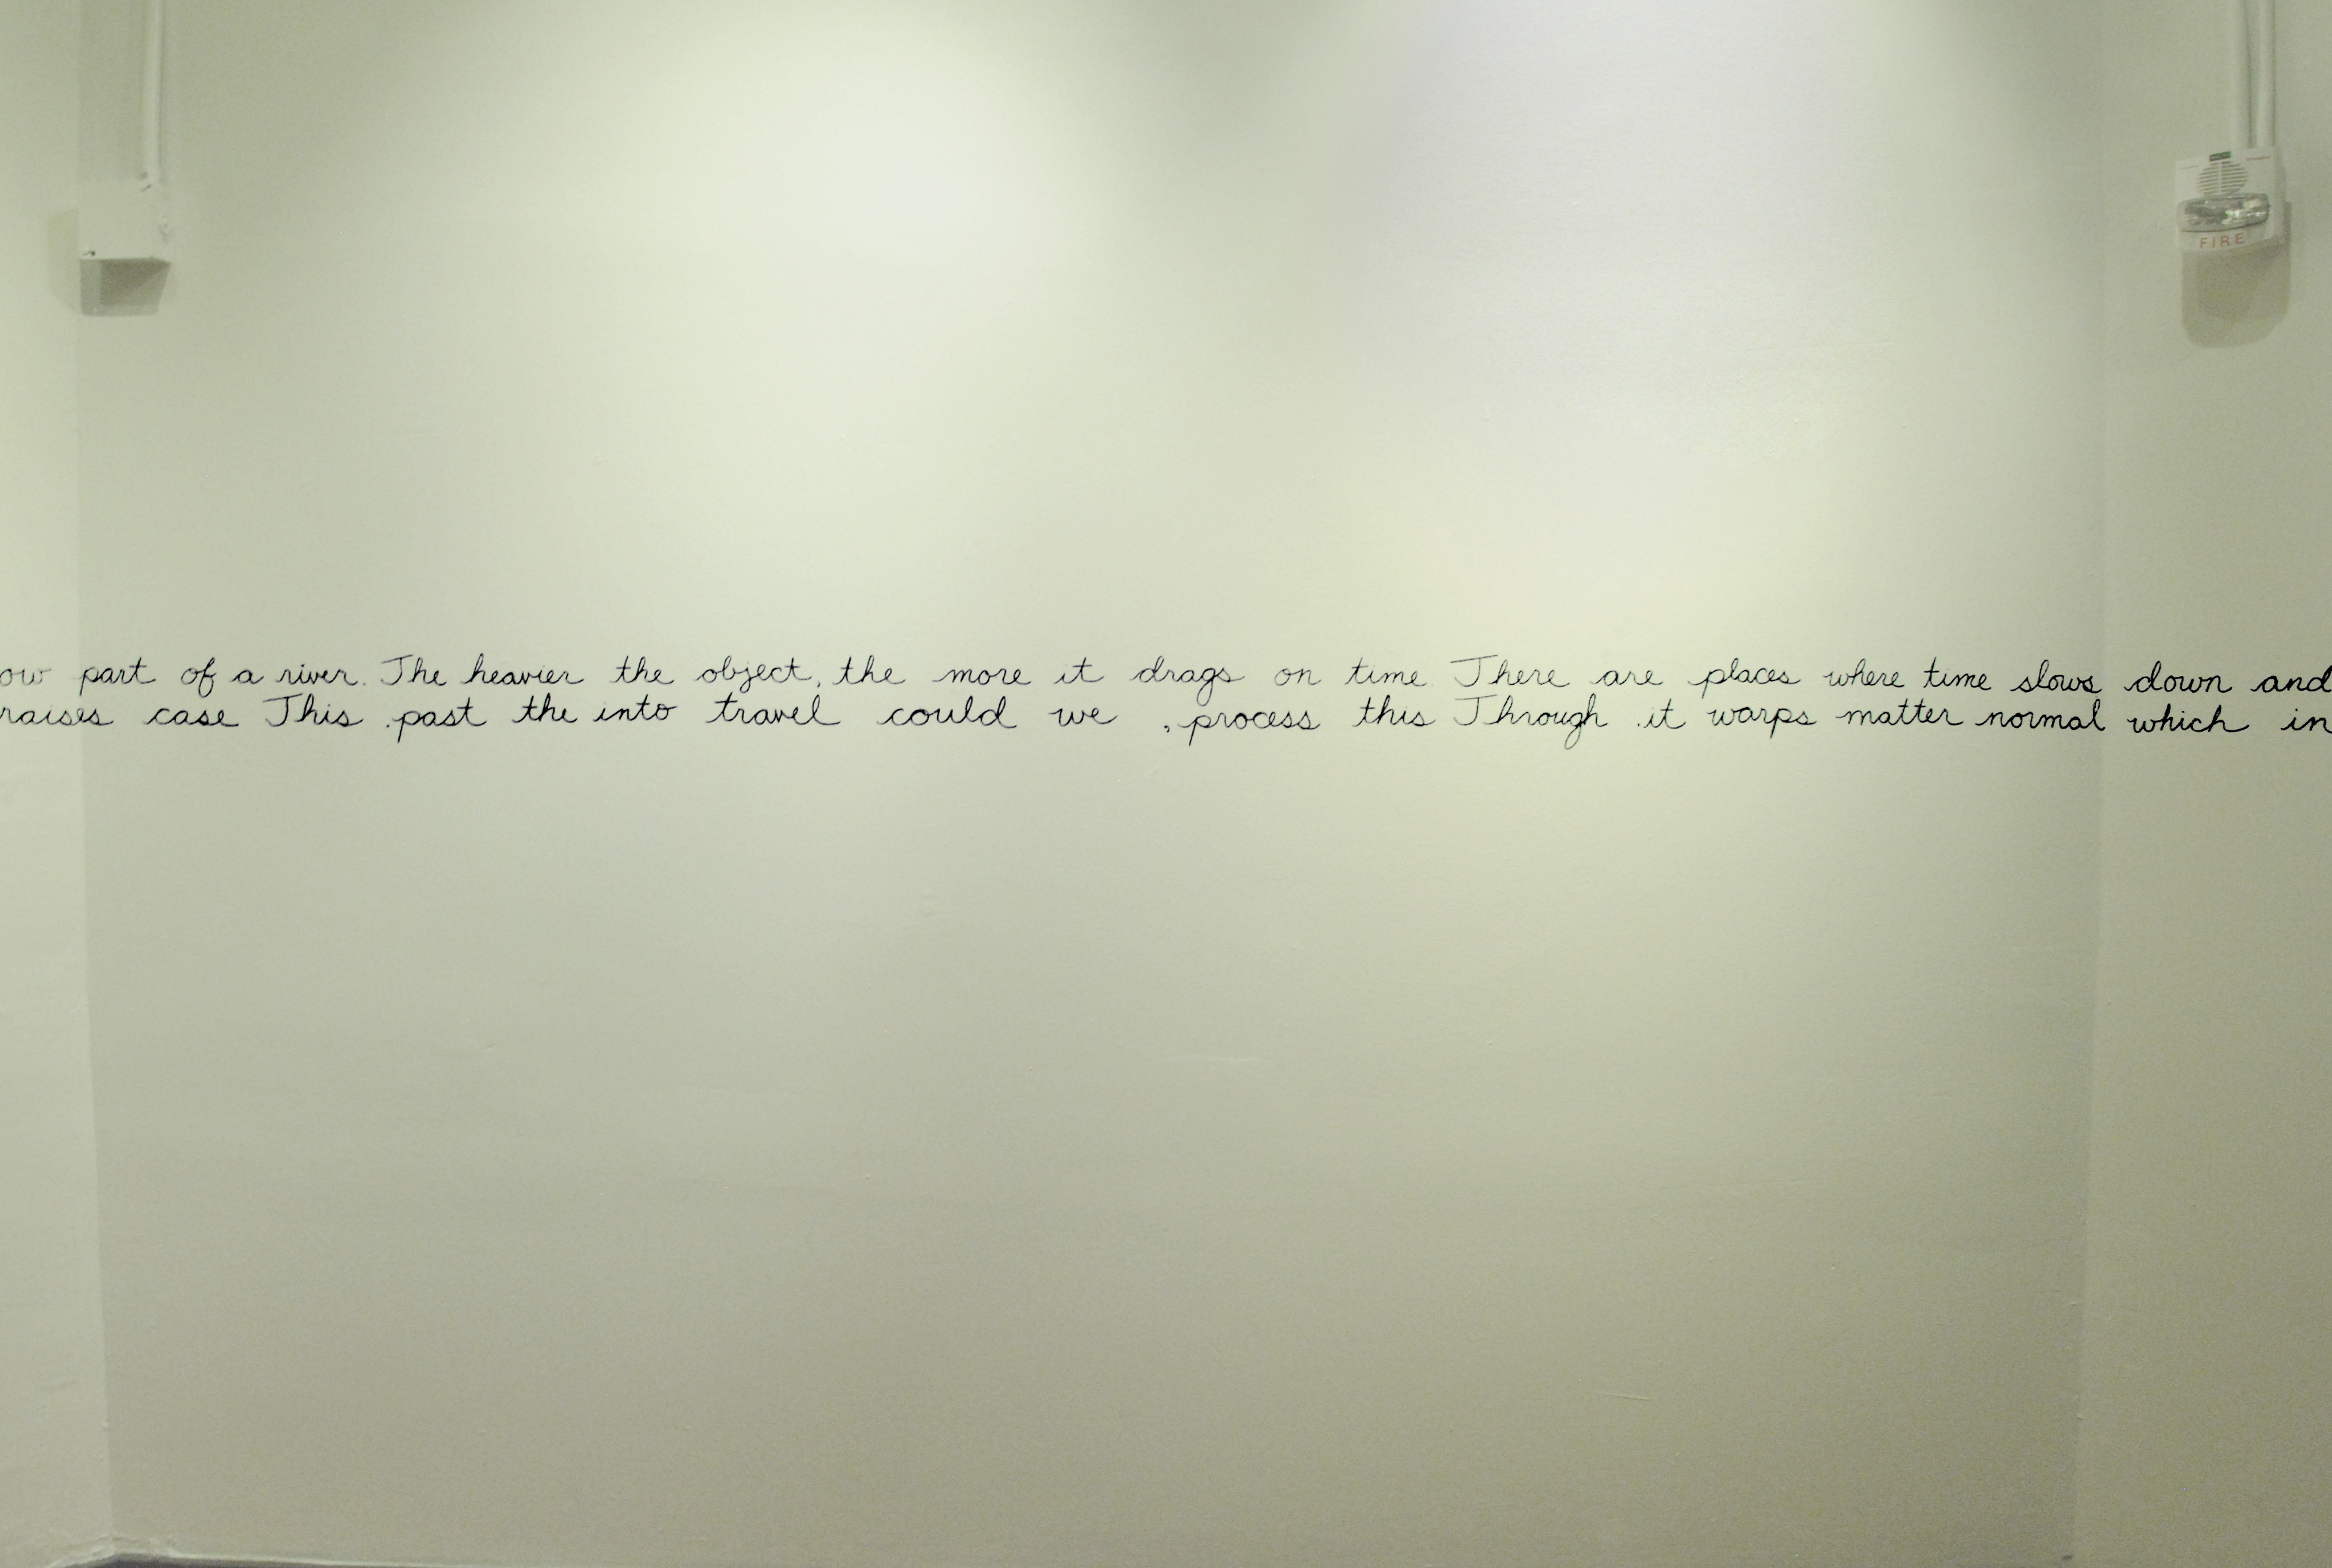 ow part of a river. The heavier the object, the more it drags on time There are places where time slows down and
raises case This .past the into travel could we , process this Through .it warps matter normal which in
FIRE